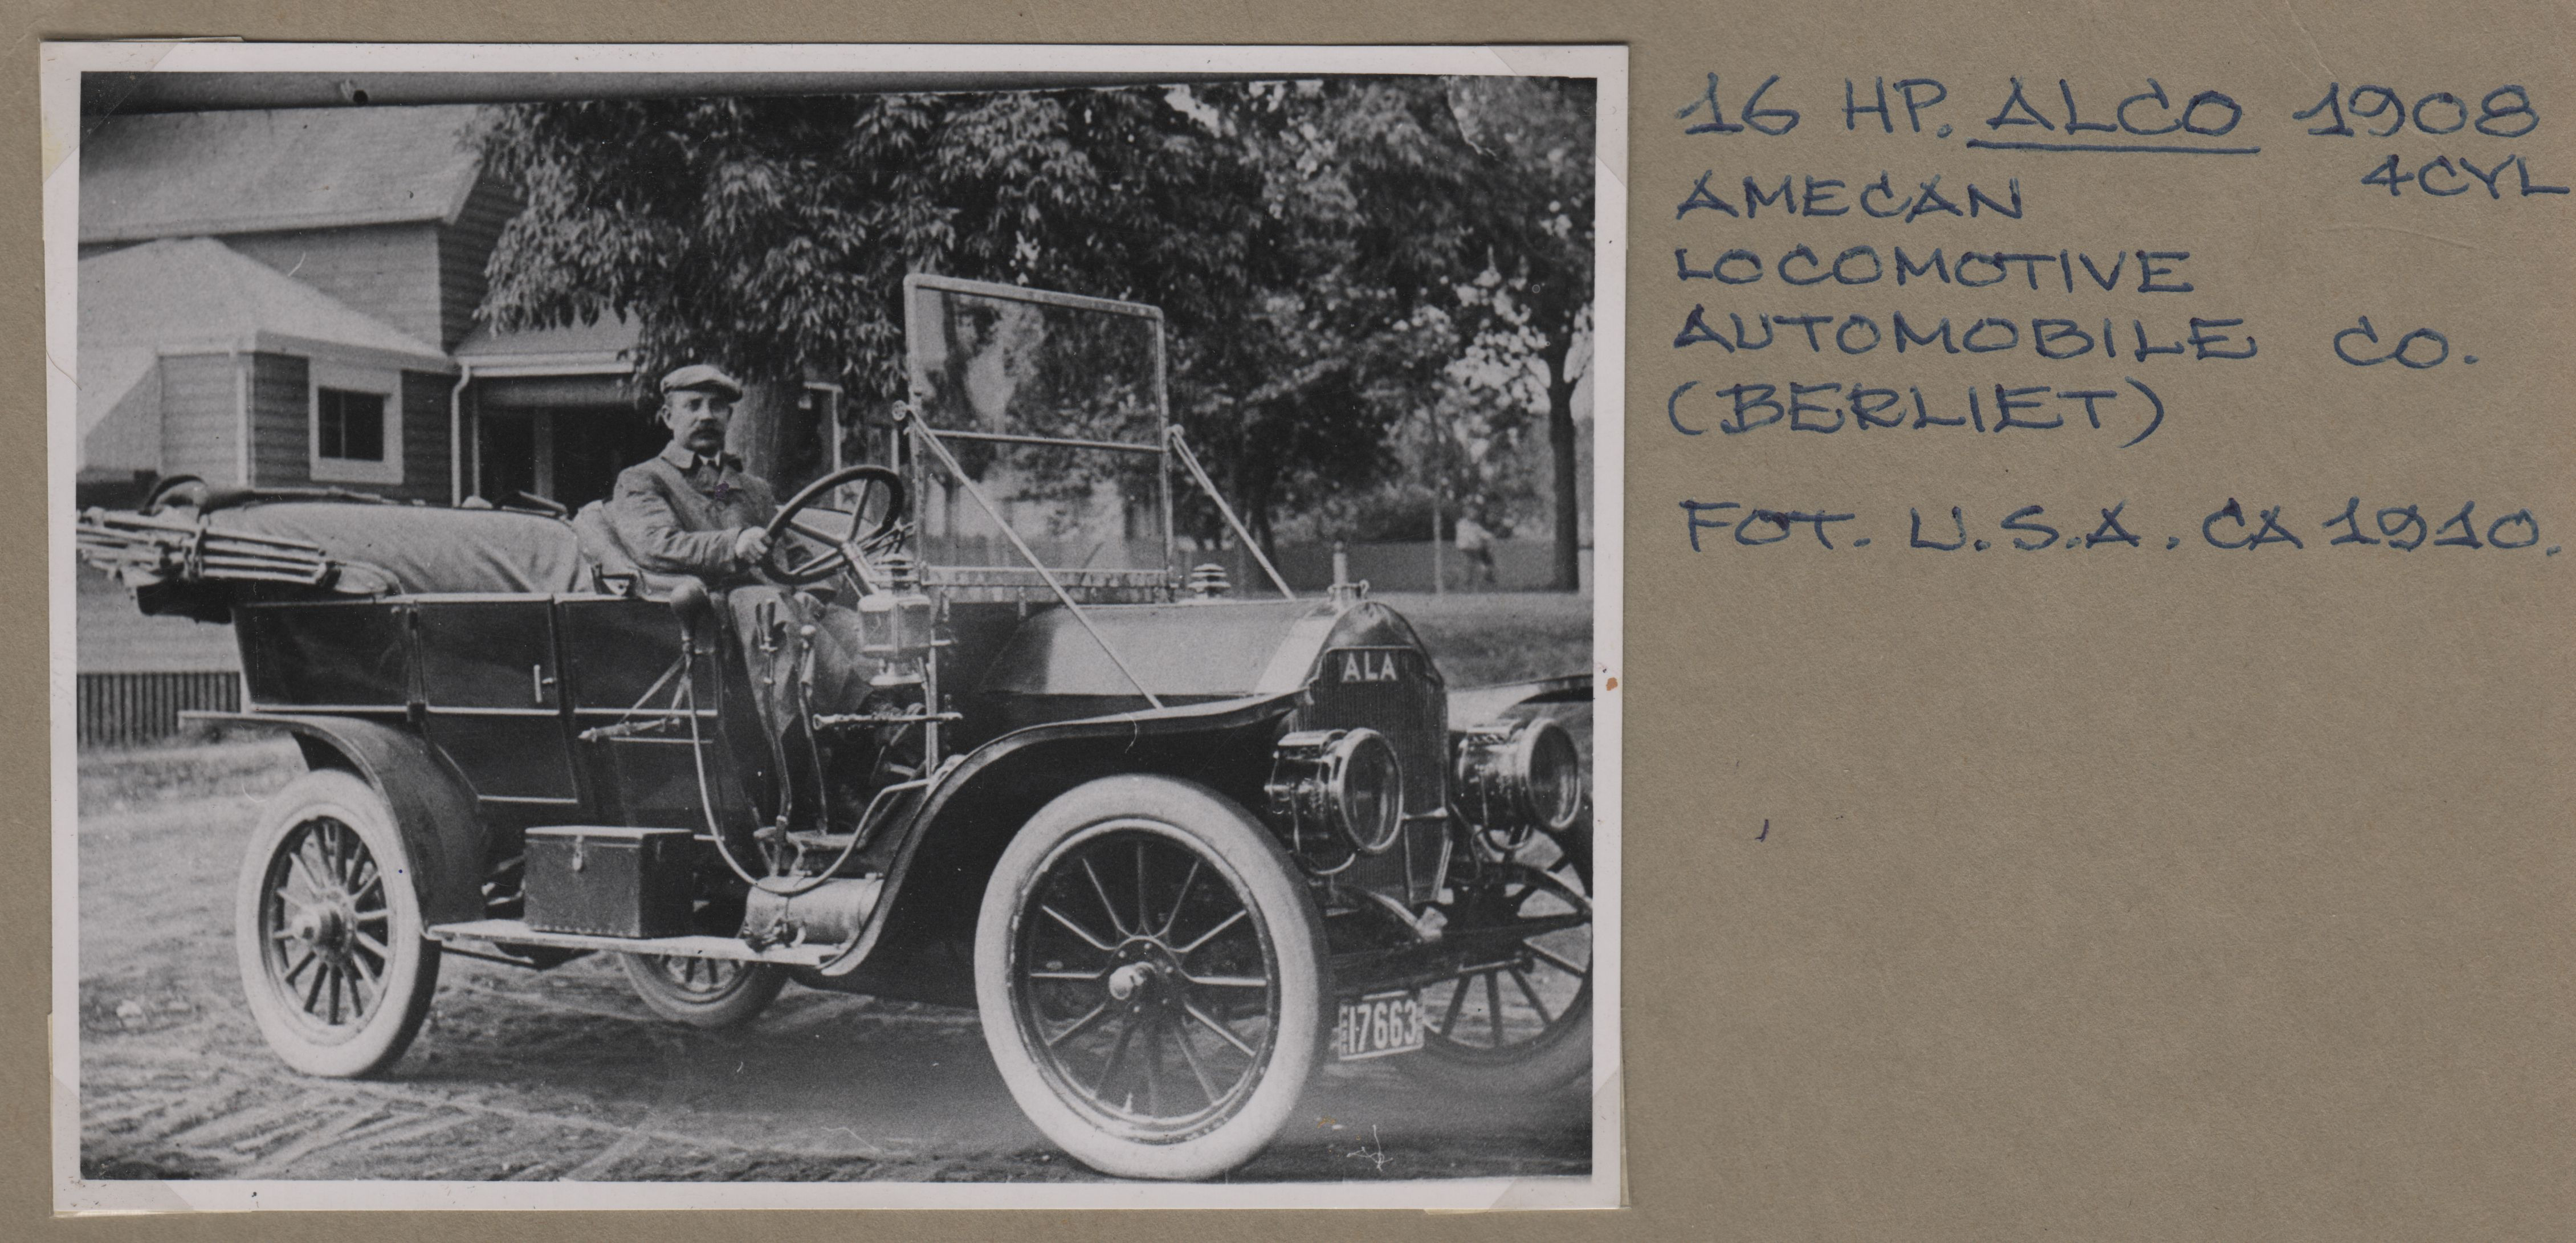 16 HP. ALCO 1908
4CYL
AMECAN
LOCOMOTIVE
AUTOMOBILE CO.
(BERLIET)
FOT. U.S.A. CA 1910.
ALA
17663